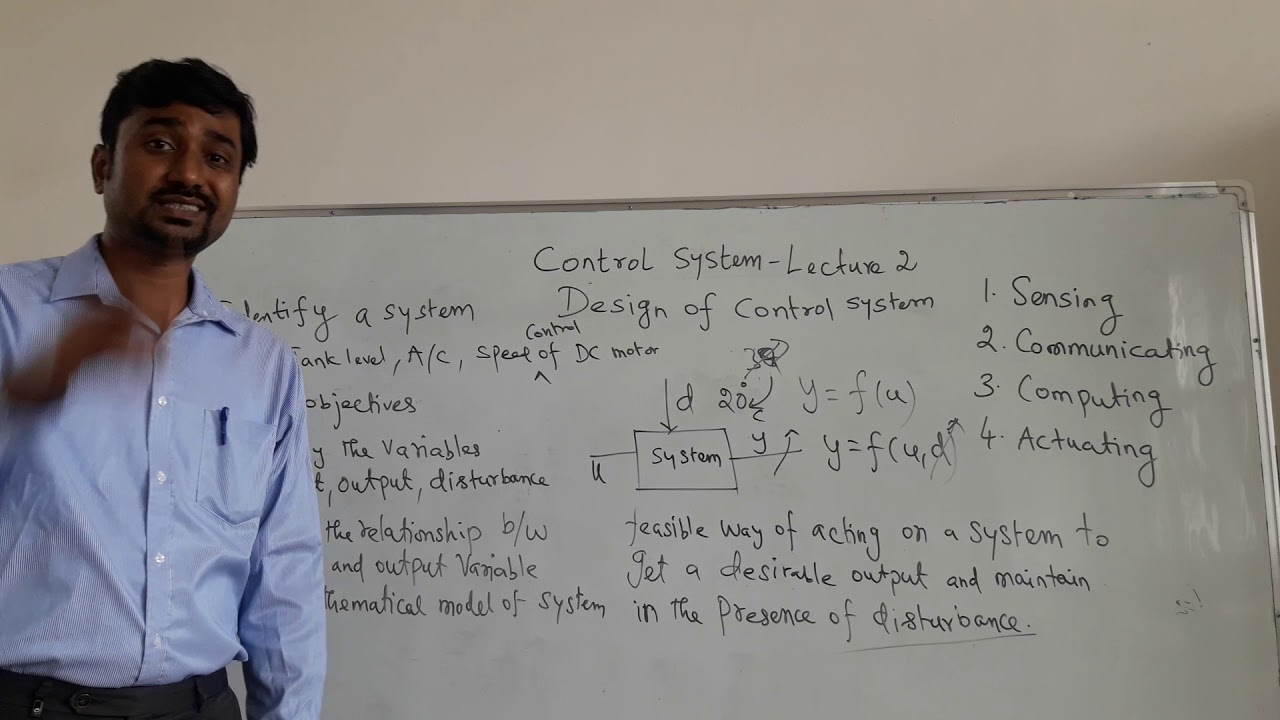 Control System - Lecture 2
Identify a system
Design of Control system
Control
Tank level, A/C, Speed of DC motor
^
objectives
y The Variables
t, output, disturbance
the relationship b/w
and output Variable
thematical model of System
d 20°c
y = f(u)
u
System
y
y = f(u,d)
feasible way of acting on a system to
get a desirable output and maintain
in the Presence of disturbance.
1. Sensing
2. Communicating
3. Computing
4. Actuating